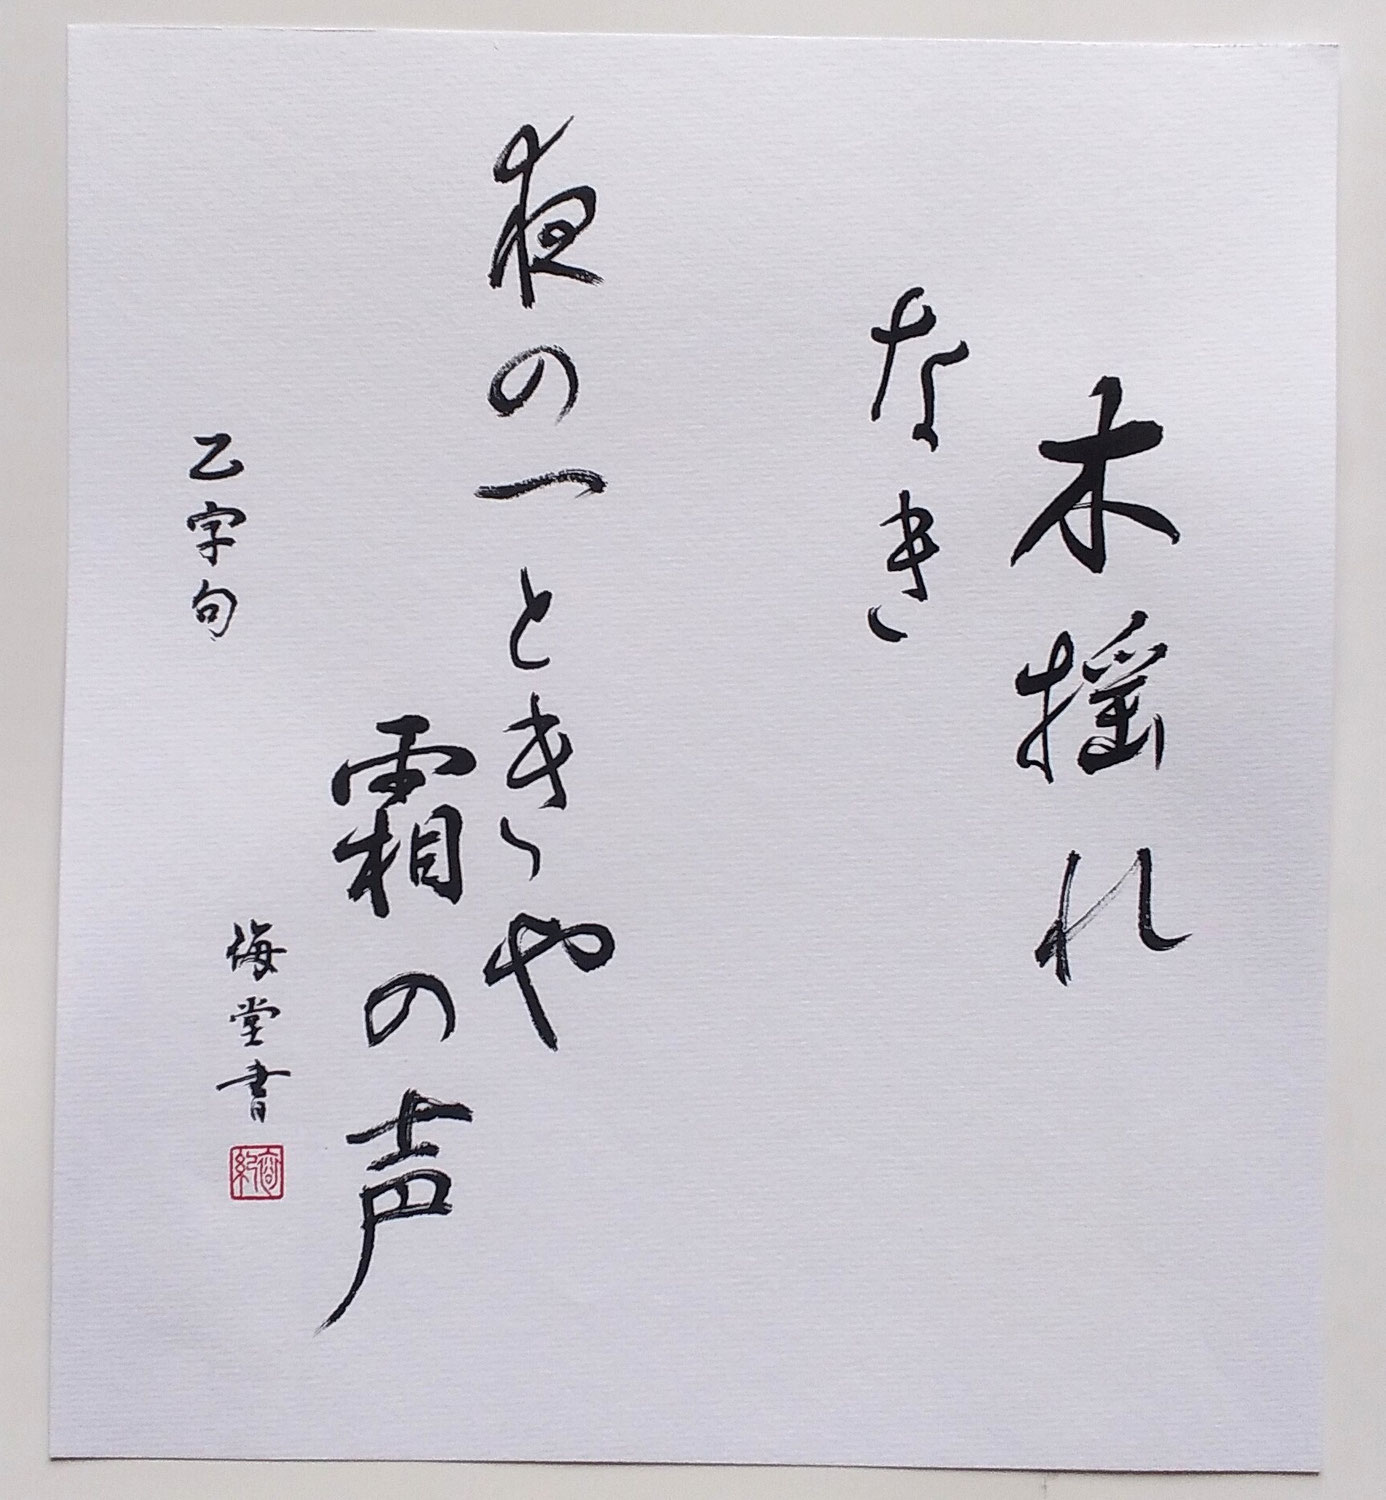 木揺れ
なき
夜の一ときや
霜の声
乙字句
海堂書